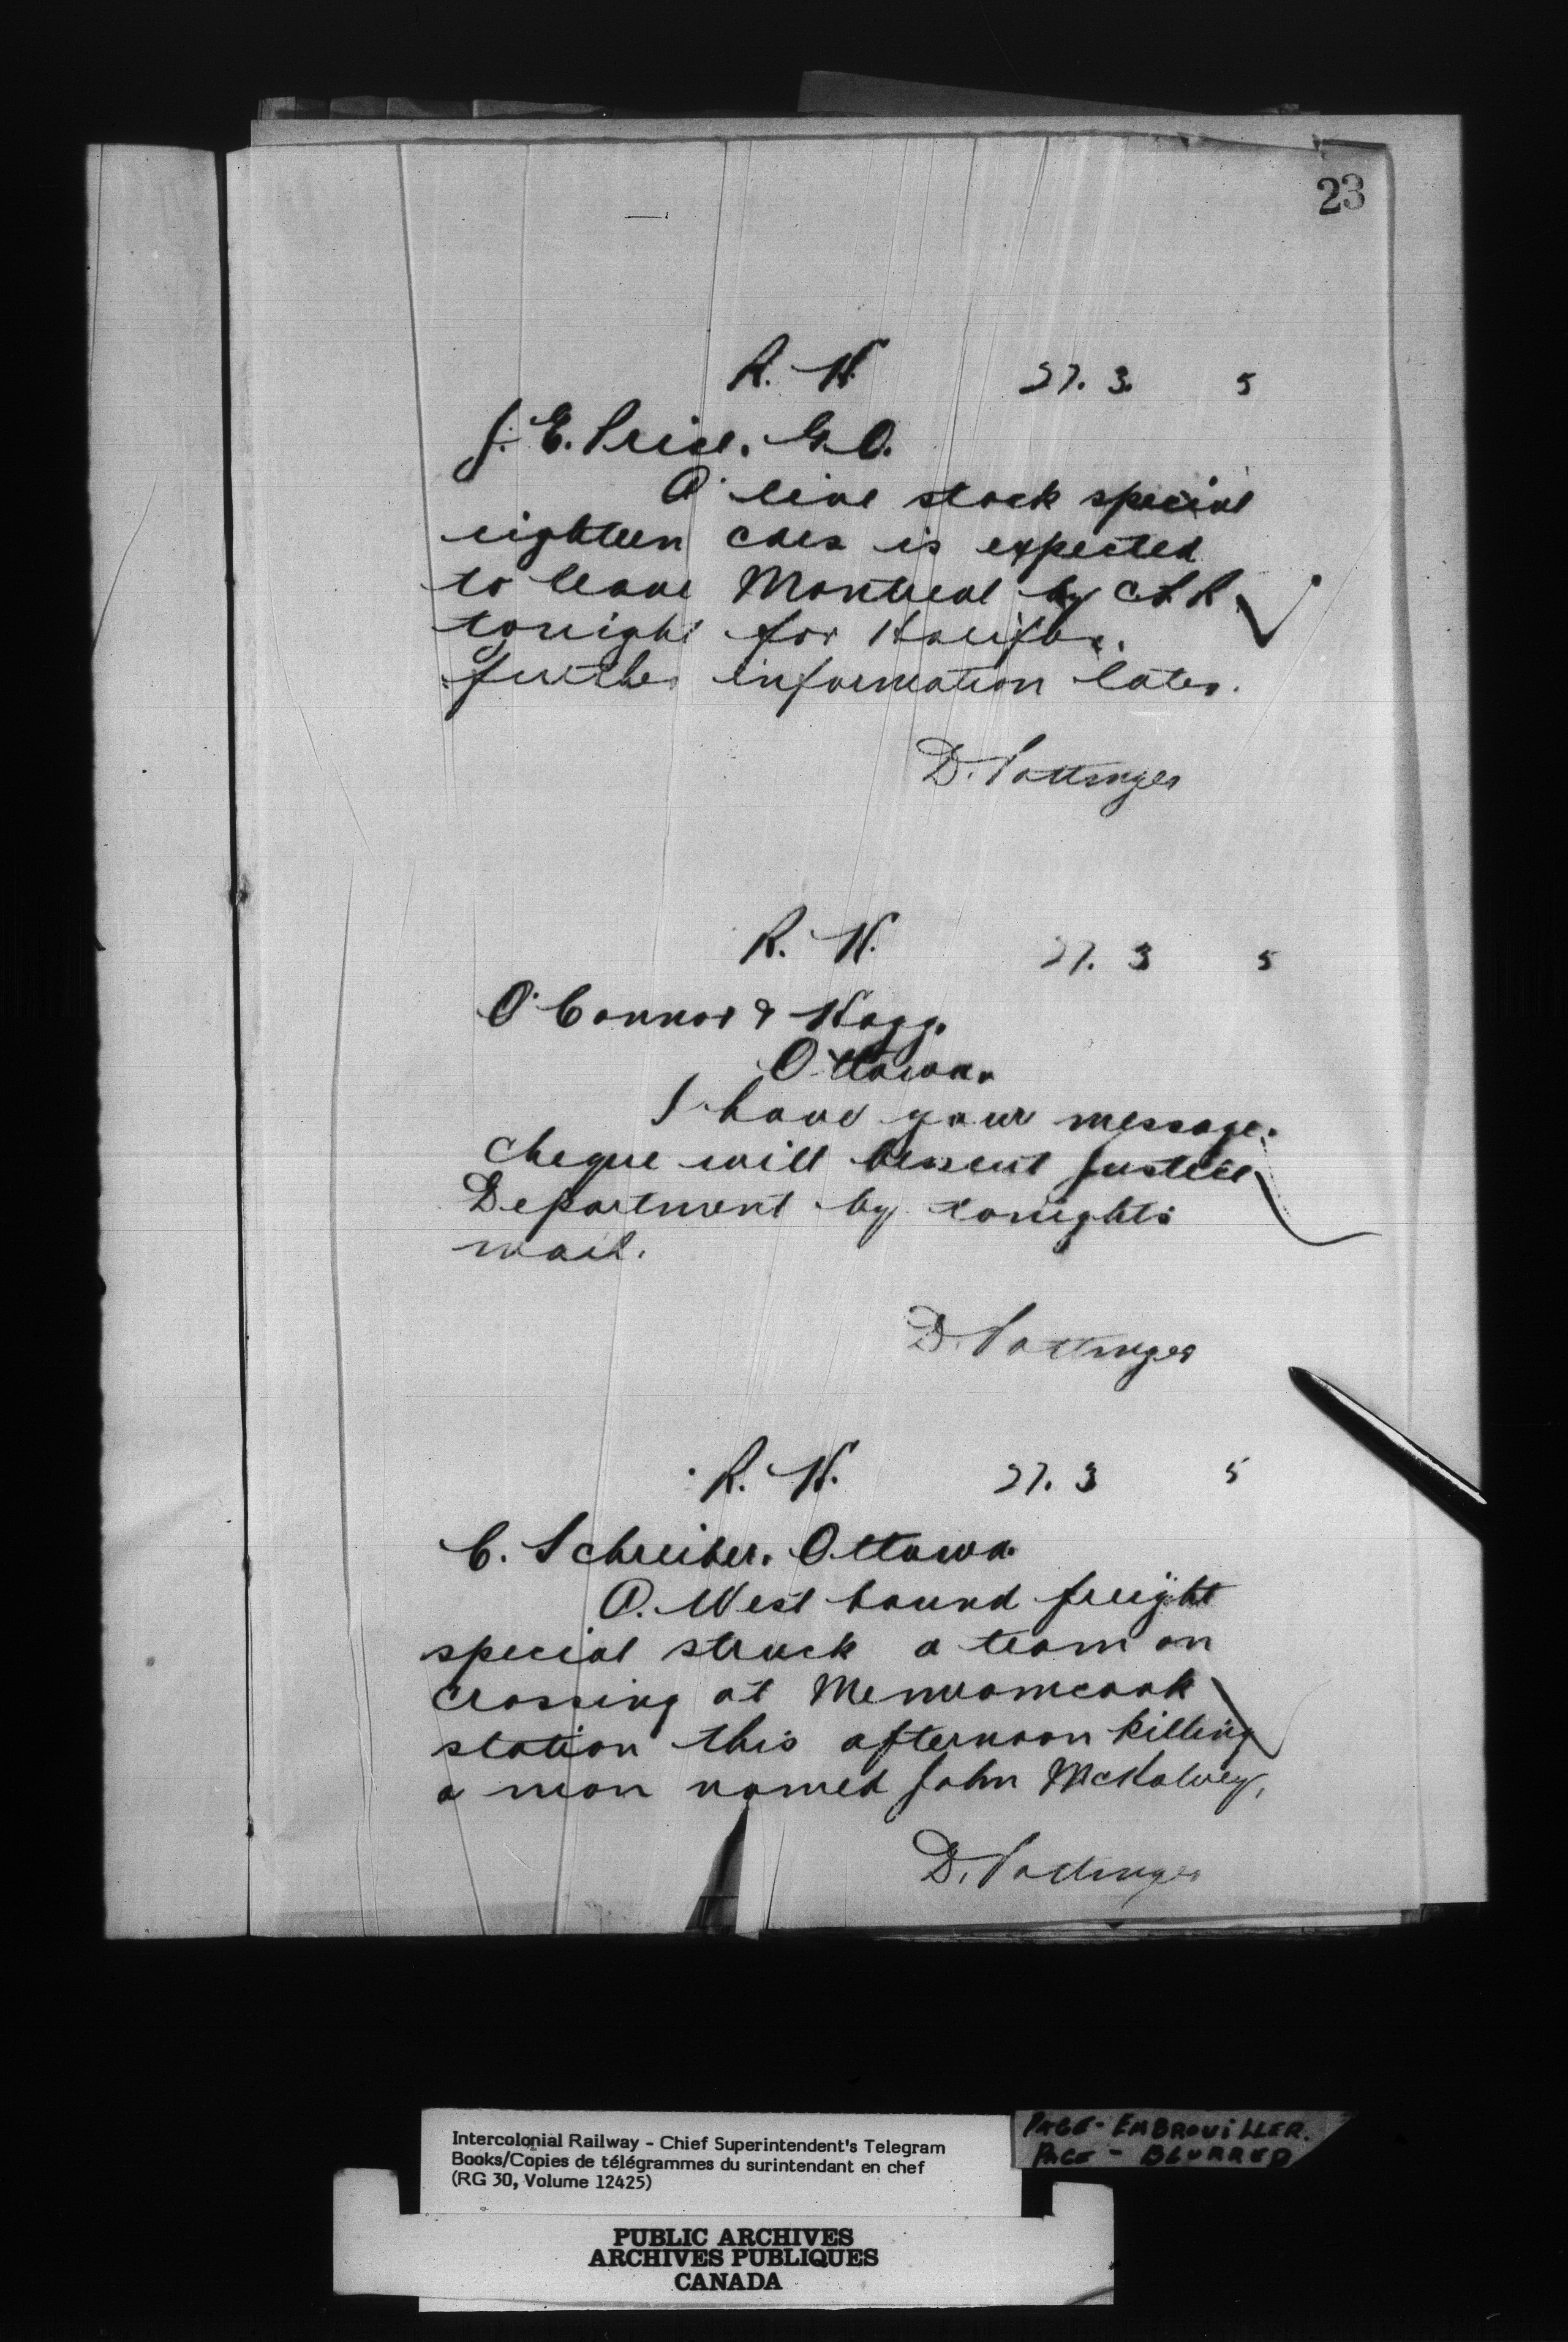 23
R. H. 27. 3. 5
J. E. Price. G.O.
A live stock special
eighteen cars is expected
to leave Montreal by C.P.R.
tonight for Halifax.
further information later.
D. Pottinger
R. H. 27. 3 5
O'Connor & Hogg.
Ottawa.
I have your message.
Cheque will be sent Justice
Department by tonights
mail.
D. Pottinger
R. H. 27. 3 5
C. Schreiber. Ottawa.
A. West bound freight
special struck a team on
crossing at Memramcook
station this afternoon killing
a man named John McKelvey,
D. Pottinger
Intercolonial Railway - Chief Superintendent's Telegram
Books/Copies de télégrammes du surintendant en chef
(RG 30, Volume 12425)
PAGE - EMBROUILLER.
PAGE - BLURRED
PUBLIC ARCHIVES
ARCHIVES PUBLIQUES
CANADA